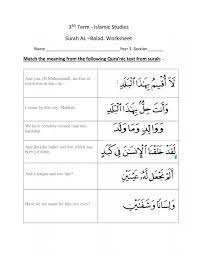 3RD Term - Islamic Studies
Surah AL –Balad. Worksheet
Name Year 3 Section
Match the meaning from the following Qura'nic text from surah:-
And you, [O Muhammad], are free of
restriction in this city -
لَا أُقْسِمُ بِهَٰذَا الْبَلَدِ
I swear by this city, Makkah.
وَأَنتَ حِلٌّ
We have certainly created man into
hardship
وَوَالِدٍ وَمَا وَلَدَ
And [by] the father and that which was
born [of him],
لَقَدْ خَلَقْنَا الْإِنسَانَ فِي كَبَدٍ
And a tongue and two lips?
أَلَمْ نَجْعَل لَّهُ عَيْنَيْنِ
Have we not made for him two eyes?
وَلِسَانًا وَشَفَتَيْنِ